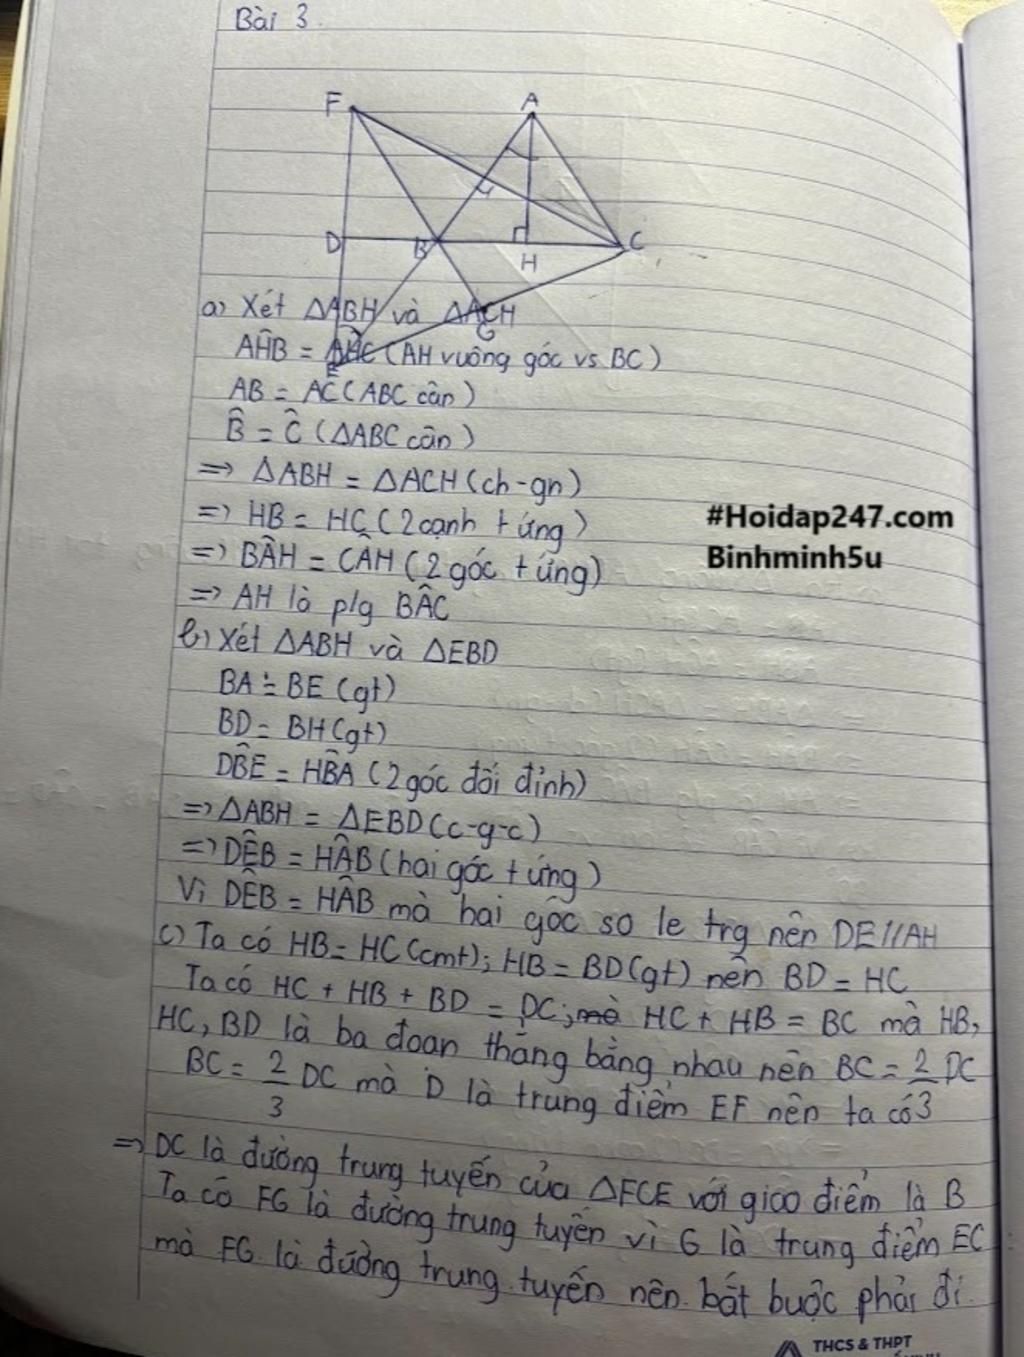 Bài 3.
F A
D B H C
G
E
a) Xét ΔABH và ΔACH
AĤB = AĤC (AH vuông góc vs BC)
AB = AC (ABC cân)
B̂ = Ĉ (ΔABC cân)
=> ΔABH = ΔACH (ch-gn)
=> HB = HC (2 cạnh t ứng)
=> BÂH = CÂH (2 góc t ứng)
=> AH là p/g BÂC
#Hoidap247.com
Binhminh5u
b) Xét ΔABH và ΔEBD
BA = BE (gt)
BD = BH (gt)
DB̂E = HB̂A (2 góc đối đỉnh)
=> ΔABH = ΔEBD (c-g-c)
=> DÊB = HÂB (hai góc t ứng)
Vì DÊB = HÂB mà hai góc so le trg nên DE // AH
c) Ta có HB = HC (cmt); HB = BD (gt) nên BD = HC
Ta có HC + HB + BD = DC; mà HC + HB = BC mà HB,
HC, BD là ba đoạn thẳng bằng nhau nên BC = 2/3 DC
BC = 2/3 DC mà D là trung điểm EF nên ta có
=> DC là đường trung tuyến của ΔFCE với giao điểm là B
Ta có FG là đường trung tuyến vì G là trung điểm EC
mà FG là đường trung tuyến nên bắt buộc phải đi
THCS & THPT